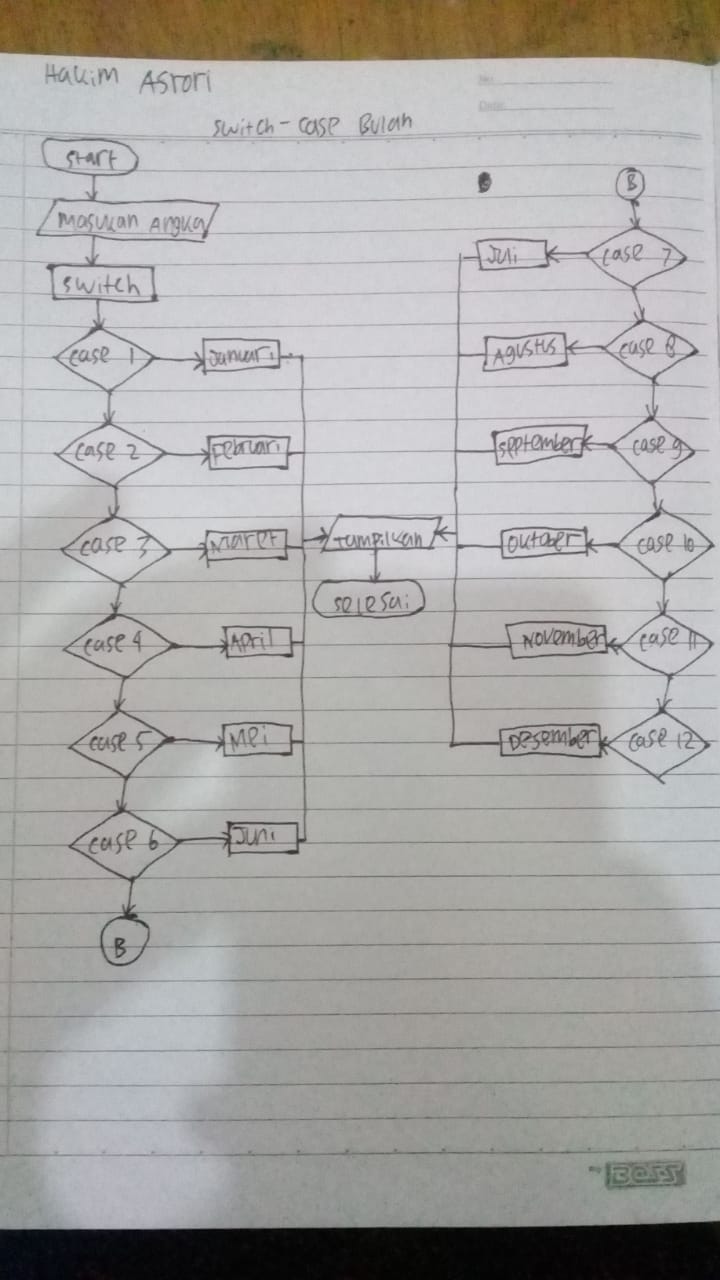 Hakim Astori
No.
Date.
Switch - Case Bulan
Start
Masukan Angka
Switch
Case 1
Januari
Case 2
Februari
Case 3
Maret
Case 4
April
Case 5
Mei
Case 6
Juni
B
Tampilkan
Selesai
B
Case 7
Juli
Case 8
Agustus
Case 9
September
Case 10
Oktober
Case 11
November
Case 12
Desember
BOSS